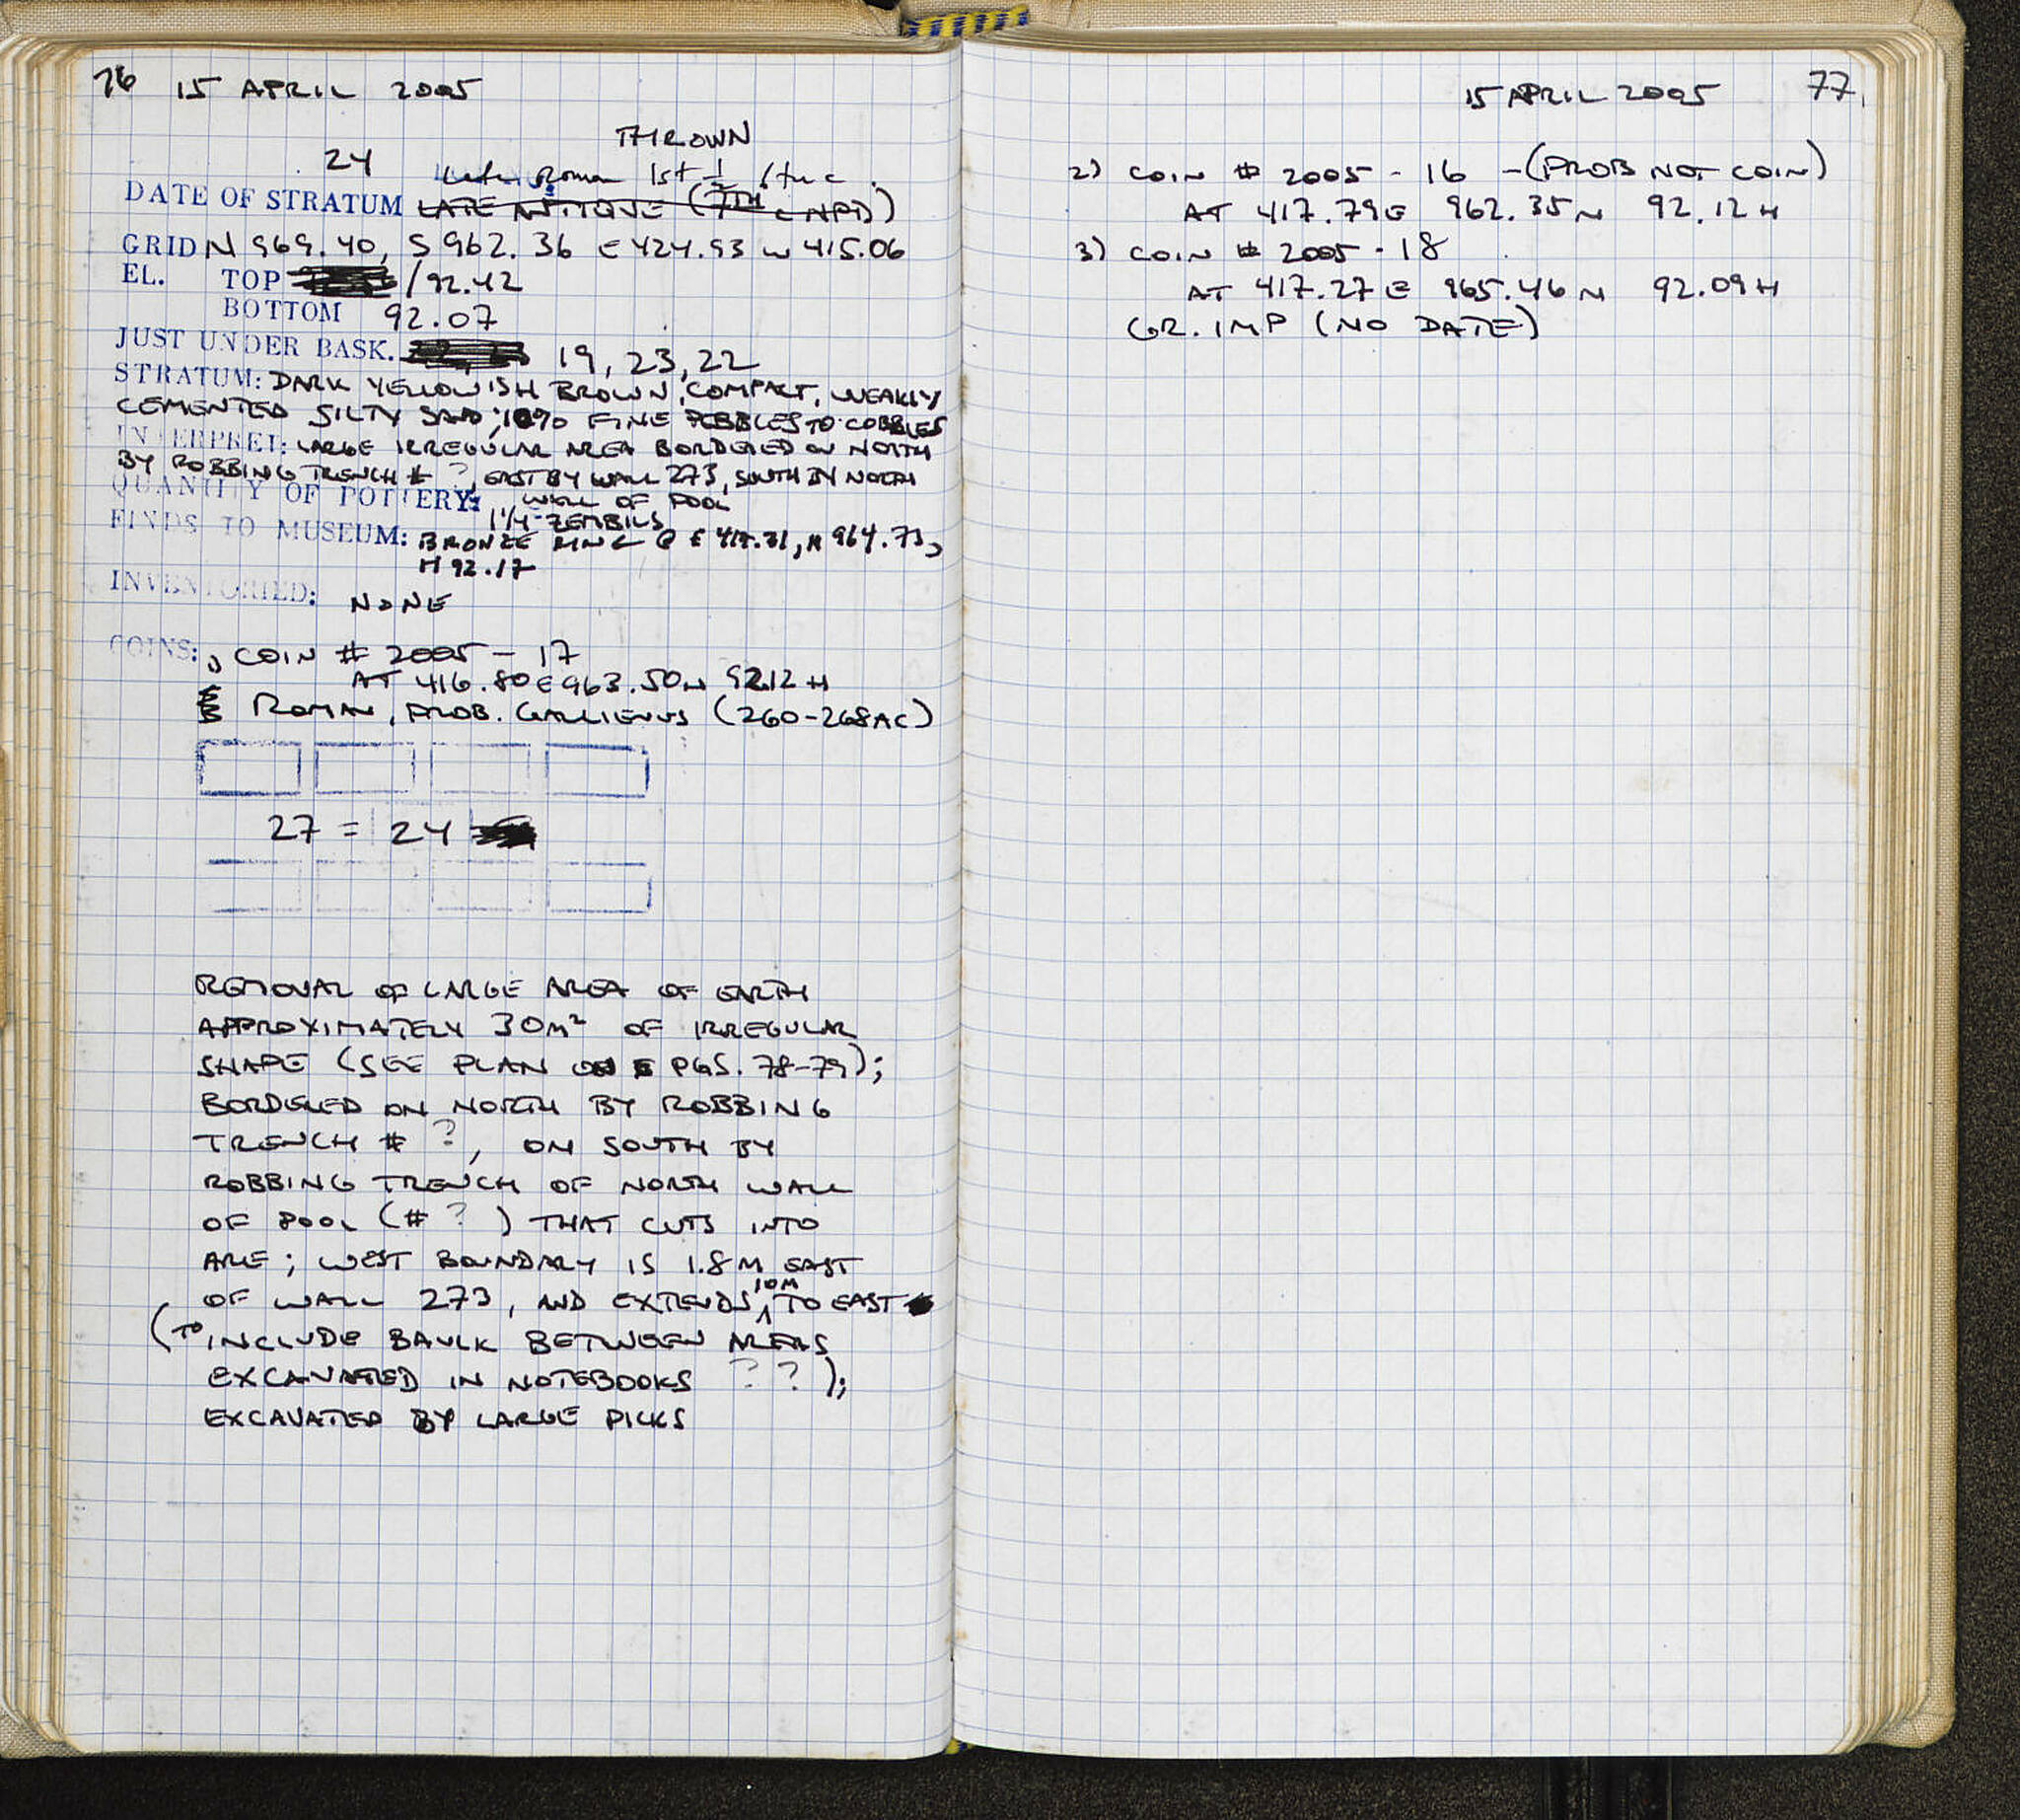 76 15 APRIL 2005
THROWN
24
Late Roman 1st ½
DATE OF STRATUM LATE ANTIQUE (7TH CNPD)
GRID N 969.40, S 962.36 E 424.93 W 415.06
EL. TOP /92.42
BOTTOM 92.07
JUST UNDER BASK. 19, 23, 22
STRATUM: DARK YELLOWISH BROWN, COMPACT, WEAKLY
CEMENTED SILTY SAND; 10% FINE PEBBLES TO COBBLES
INTERPRET: LARGE IRREGULAR AREA BORDERED ON NORTH
BY ROBBING TRENCH # ?, EAST BY WALL 273, SOUTH BY NORTH
WALL OF POOL
QUANTITY OF POTTERY:
1 1/4 ZEMBILS
FINDS TO MUSEUM: BRONZE RING @ E 417.31, N 964.73,
H 92.17
INVENTORIED: NONE
COINS: 1) COIN # 2005 - 17
AT 416.80 E 963.50 N 92.12 H
ROMAN, PROB. GALLIENUS (260-268 AC)
27 = 24
REMOVAL OF LARGE AREA OF EARTH
APPROXIMATELY 30M² OF IRREGULAR
SHAPE (SEE PLAN ON PGS. 78-79);
BORDERED ON NORTH BY ROBBING
TRENCH # ?, ON SOUTH BY
ROBBING TRENCH OF NORTH WALL
OF POOL (# ? ) THAT CUTS INTO
ARE; WEST BOUNDARY IS 1.8M EAST
OF WALL 273, AND EXTENDS 10M TO EAST
(TO INCLUDE BAULK BETWEEN AREAS
EXCAVATED IN NOTEBOOKS ? ? );
EXCAVATED BY LARGE PICKS
15 APRIL 2005 77
2) COIN # 2005 - 16 - (PROB NOT COIN)
AT 417.79 E 962.35 N 92.12 H
3) COIN # 2005 - 18
AT 417.27 E 965.46 N 92.09 H
GR. IMP (NO DATE)